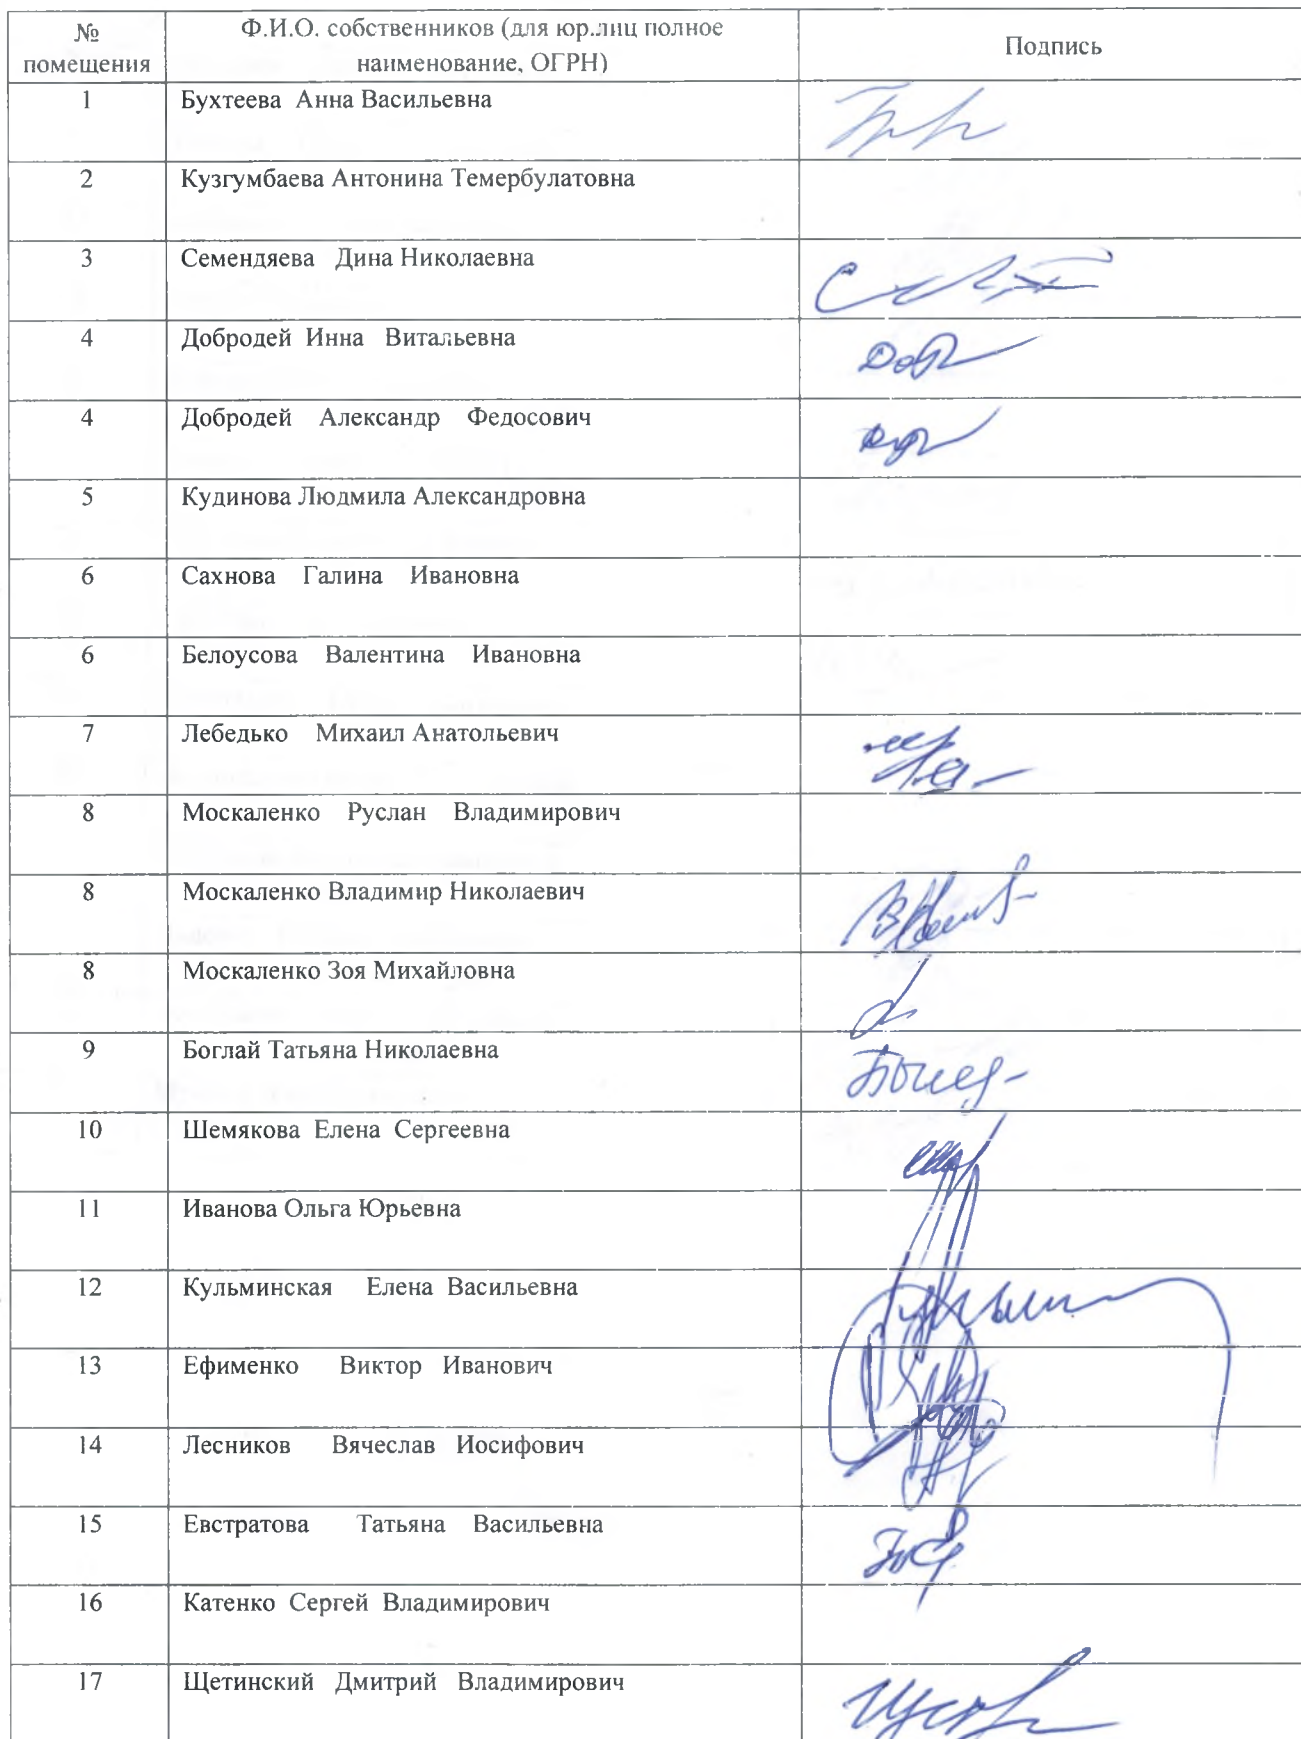 № помещения
Ф.И.О. собственников (для юр.лиц полное
наименование, ОГРН)
Подпись
1 Бухтеева Анна Васильевна
2 Кузгумбаева Антонина Темербулатовна
3 Семендяева Дина Николаевна
4 Добродей Инна Витальевна
4 Добродей Александр Федосович
5 Кудинова Людмила Александровна
6 Сахнова Галина Ивановна
6 Белоусова Валентина Ивановна
7 Лебедько Михаил Анатольевич
8 Москаленко Руслан Владимирович
8 Москаленко Владимир Николаевич
8 Москаленко Зоя Михайловна
9 Боглай Татьяна Николаевна
10 Шемякова Елена Сергеевна
11 Иванова Ольга Юрьевна
12 Кульминская Елена Васильевна
13 Ефименко Виктор Иванович
14 Лесников Вячеслав Иосифович
15 Евстратова Татьяна Васильевна
16 Катенко Сергей Владимирович
17 Щетинский Дмитрий Владимирович